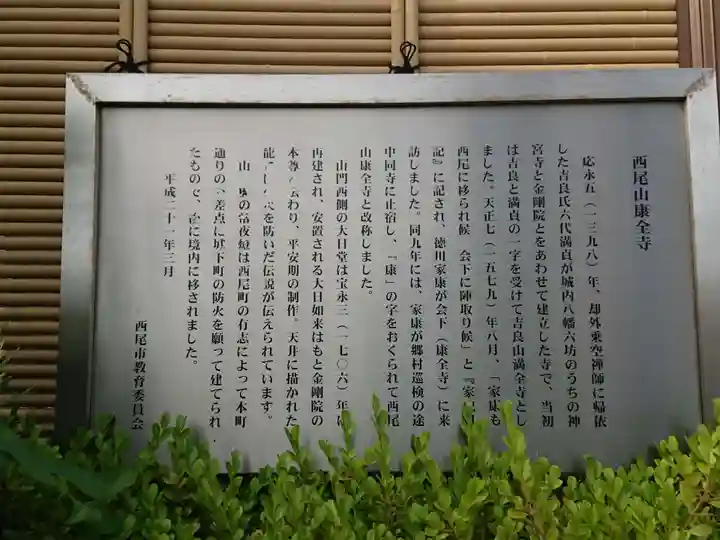 西尾山康全寺
応永五(一三九八)年、却外乗空禅師に帰依
した吉良氏六代満貞が城内八幡六坊のうちの神
宮寺と金剛院とをあわせて建立した寺で、当初
は吉良と満貞の一字を受けて吉良山満全寺とし
ました。天正七(一五七九)年八月、「家康も
西尾に移られ候 会下に陣取り候」と『家
記』に記され、徳川家康が会下(康全寺)に来
訪しました。同九年には、家康が郷村巡検の途
中同寺に止宿し、「康」の字をおくられて西尾
山康全寺と改称しました。
山門西側の大日堂は宝永三(一七〇六)年に
再建され、安置される大日如来はもと金剛院の
本尊 伝わり、平安期の制作。天井に描かれた
龍 を防いだ伝説が伝えられています。
山 の常夜燈は西尾町の有志によって本町
通りの 差点に城下町の防火を願って建てられ
たもので、 に境内に移されました。
平成二十一年三月
西尾市教育委員会